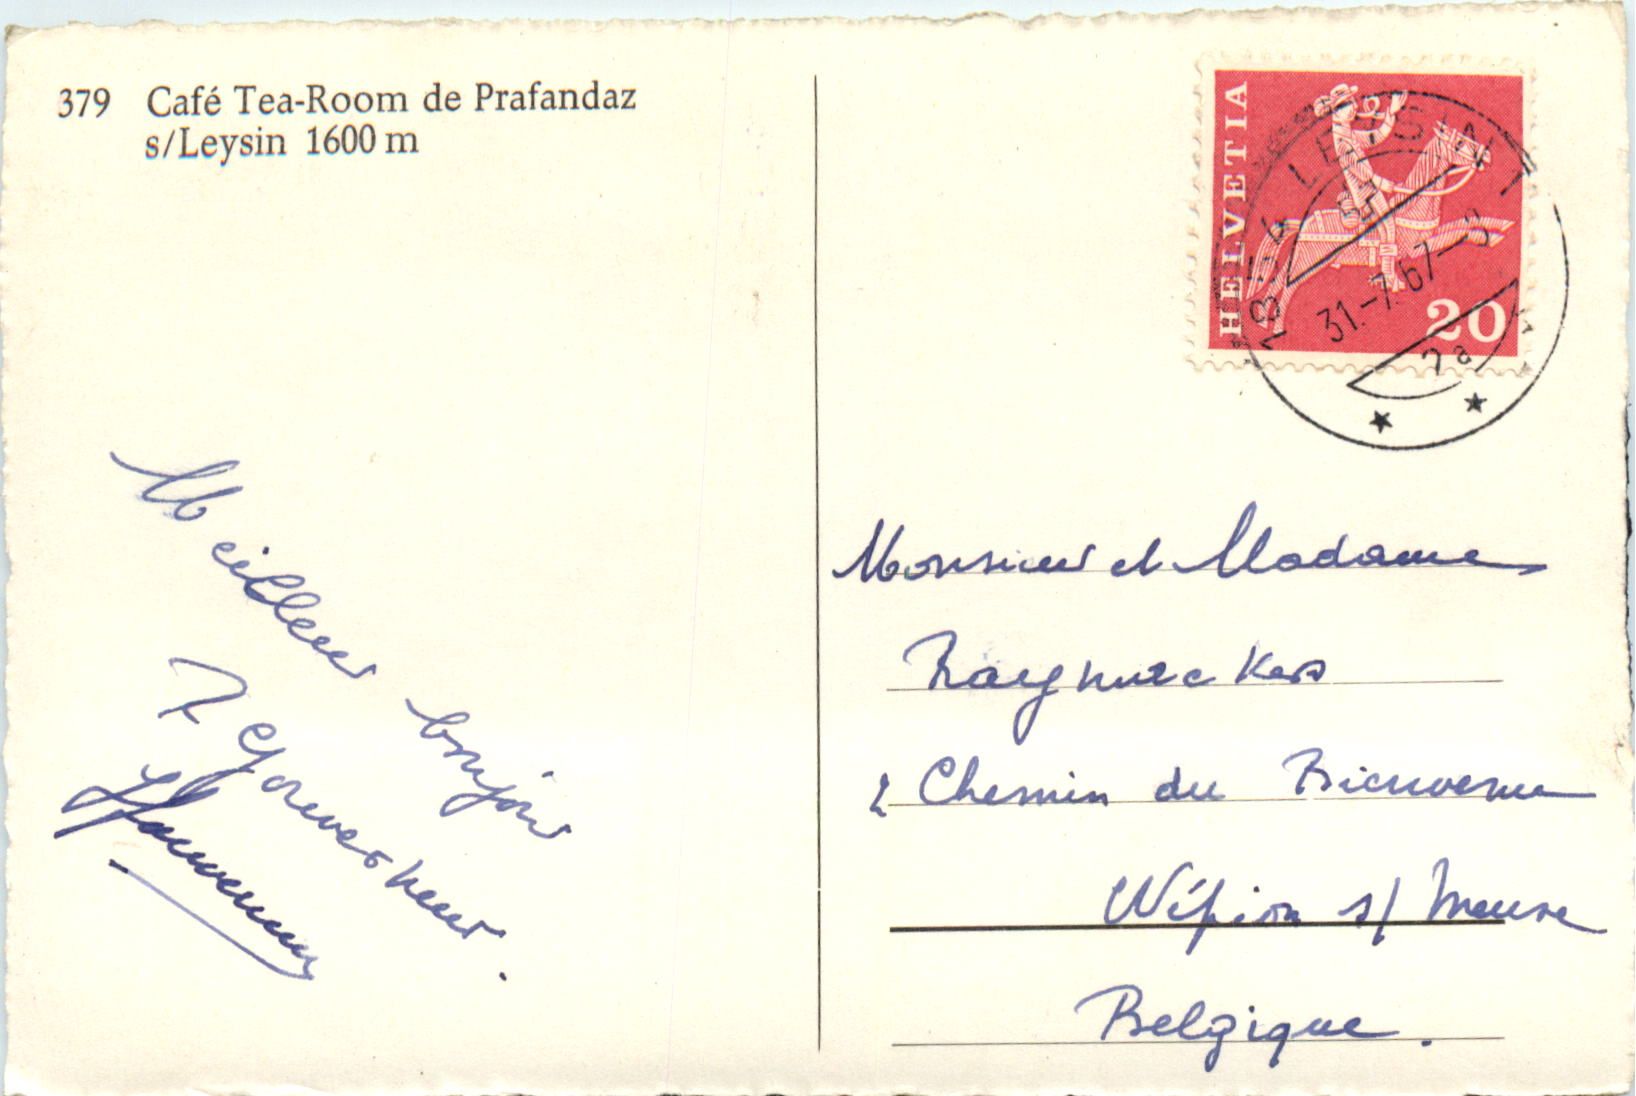 379 Café Tea-Room de Prafandaz
s/Leysin 1600 m
HELVETIA
20
1854 LEYSIN 1
31.-7.67-
2a
Meilleur bonjour
Monsieur et Madame
2 Chemin du Bienvenu
Wépion s/ Meuse
Belgique.